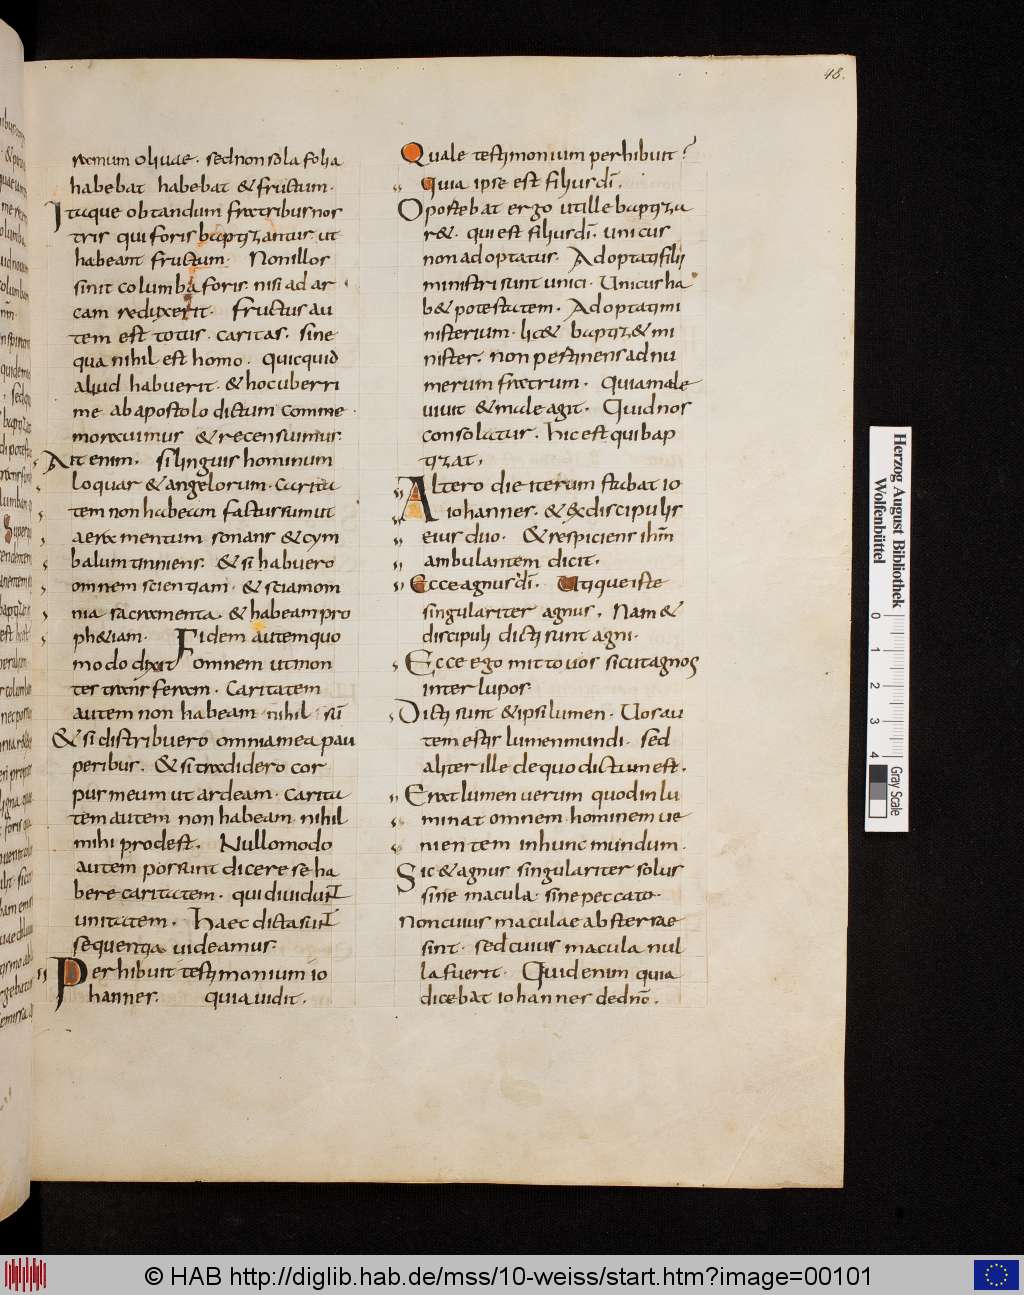 48.
ramum olivae. sed non sola folia
habebat habebat & fructum.
Itaque obtandum fratribus nos
tris qui foris baptizantur. ut
habeant fructum. Non illos
sinit columba foris. nisi ad ar
cam reduxerit. fructus au
tem est totus. caritas. sine
qua nihil est homo. quicquid
aliud habuerit. & hoc uberri
me ab apostolo dictum comme
moravimus & recensuimus.
Ait enim. si linguis hominum
loquar & angelorum. carita
tem non habeam factus sum ut
aera mentum sonans & cym
balum tinniens. & si habuero
omnem scientiam. & sciam om
nia sacramenta. & habeam pro
ph&iam. Fidem autem quo
modo dixit omnem ut mon
tes transferam. Caritatem
autem non habeam nihil sū
& si distribuero omnia mea pau
peribus. & si tradidero cor
pus meum ut ardeam. carita
tem autem non habeam nihil
mihi prodest. Nullo modo
autem possunt dicere se ha
bere caritatem. qui dividunt
unitatem. Haec dicta sunt
sequentia videamus.
Perhibuit testimonium io
hannes. quia vidit.
Quale testimonium perhibuit?
quia ipse est filius dī.
Opostebat ergo ut ille baptiza
r&. qui est filius dī. unicus
non adoptatus. Adoptati filii
ministri sunt unici. Unicus ha
b& potestatem. Adoptati mi
nisterium. lic& baptiz& mi
nister. non pertinens ad nu
merum fratrum. quia male
vivit & male agit. Quid nos
consolatur. hic est qui bap
tizat.
Altero die iterum stabat io
iohannes. & ex discipulis
eius duo. & respiciens ihm̄
ambulantem dicit.
Ecce agnus dī. Utique iste
singulariter agnus. Nam &
discipuli dicti sunt agni.
Ecce ego mitto vos sicut agnos
inter lupos.
Dicti sunt & ipsi lumen. Vos au
tem estis lumen mundi. sed
aliter ille de quo dictum est.
Erat lumen verum quod inlu
minat omnem hominem ve
nientem in hunc mundum.
Sic & agnus singulariter solus
sine macula. sine peccato.
Non cuius maculae abstersae
sint. sed cuius macula nul
la fuerit. Quid enim quia
dicebat iohannes de dnō.
Herzog August Bibliothek
Wolfenbüttel
0 1 2 3 4
Gray Scale
© HAB http://diglib.hab.de/mss/10-weiss/start.htm?image=00101